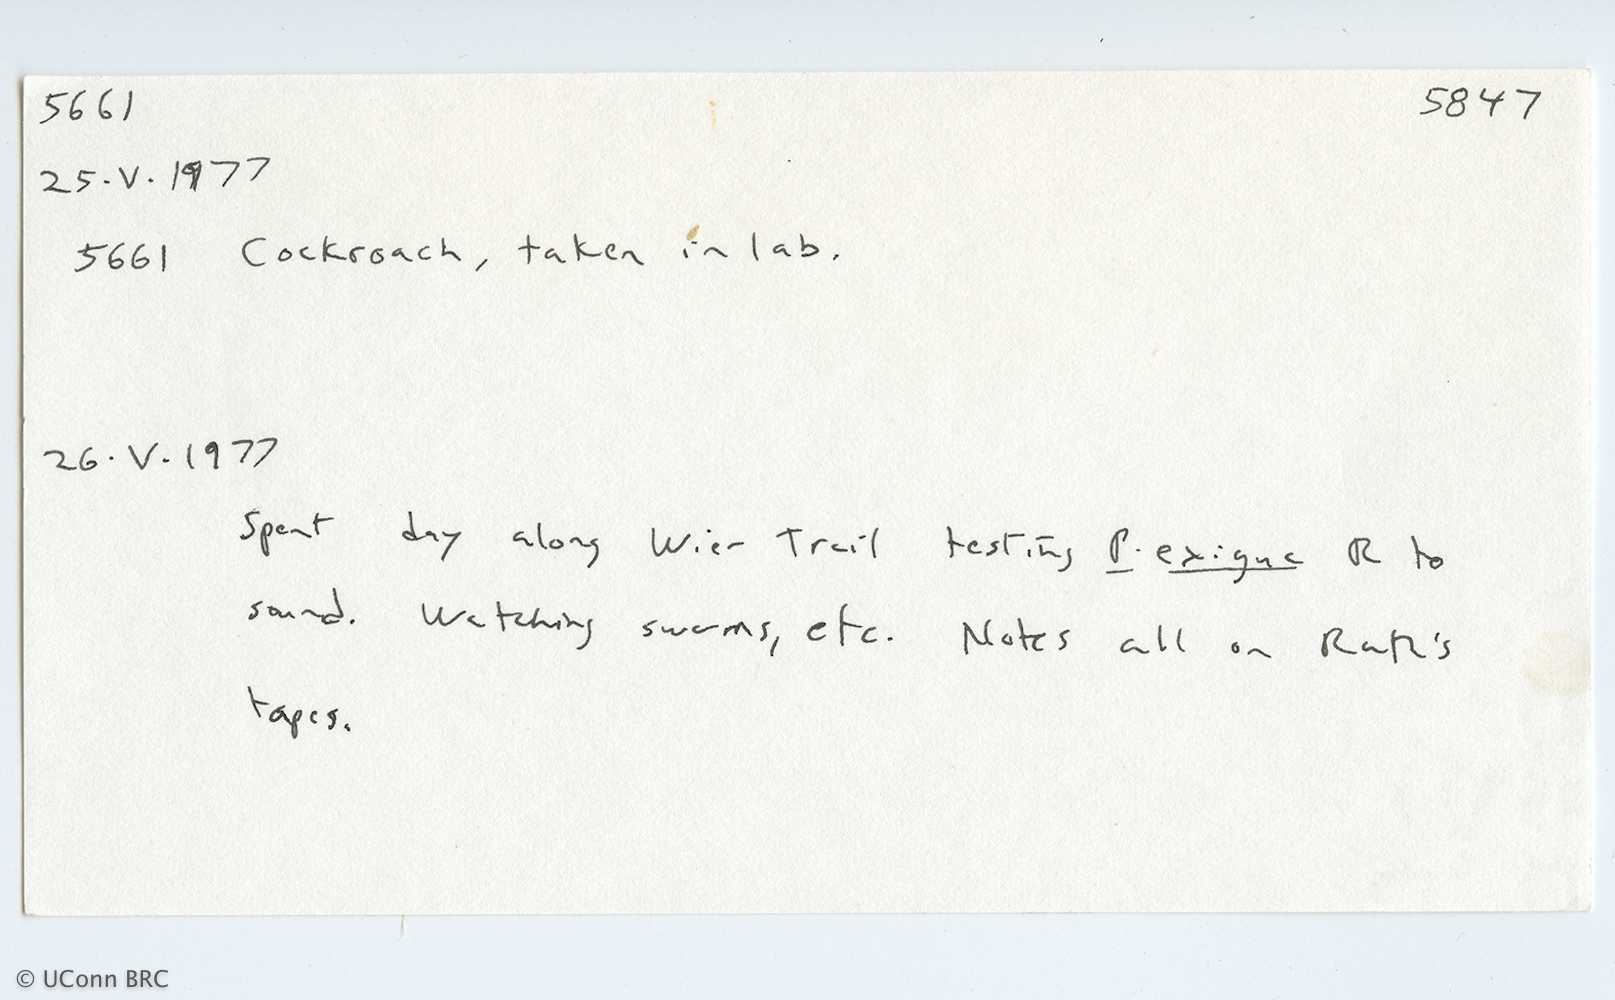 5661 5847
25.V.1977
5661 Cockroach, taken in lab.
26.V.1977
Spent day along Wier Trail testing P. exigua R to
sound. Watching swarms, etc. Notes all on
tapes.
© UConn BRC